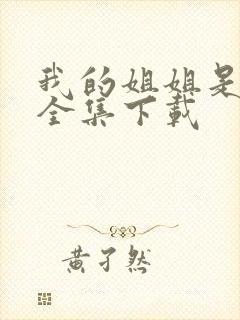 我的姐姐是
全集下载
黄孑然